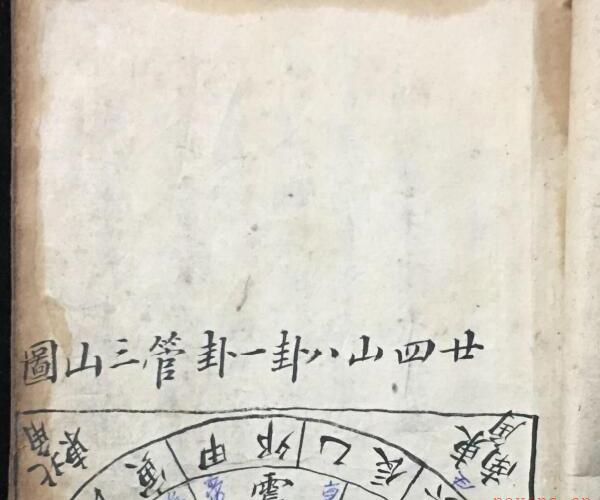 廿四山八卦一卦管三山圖
東北角
東南角
寅
甲
卯
乙
辰
震